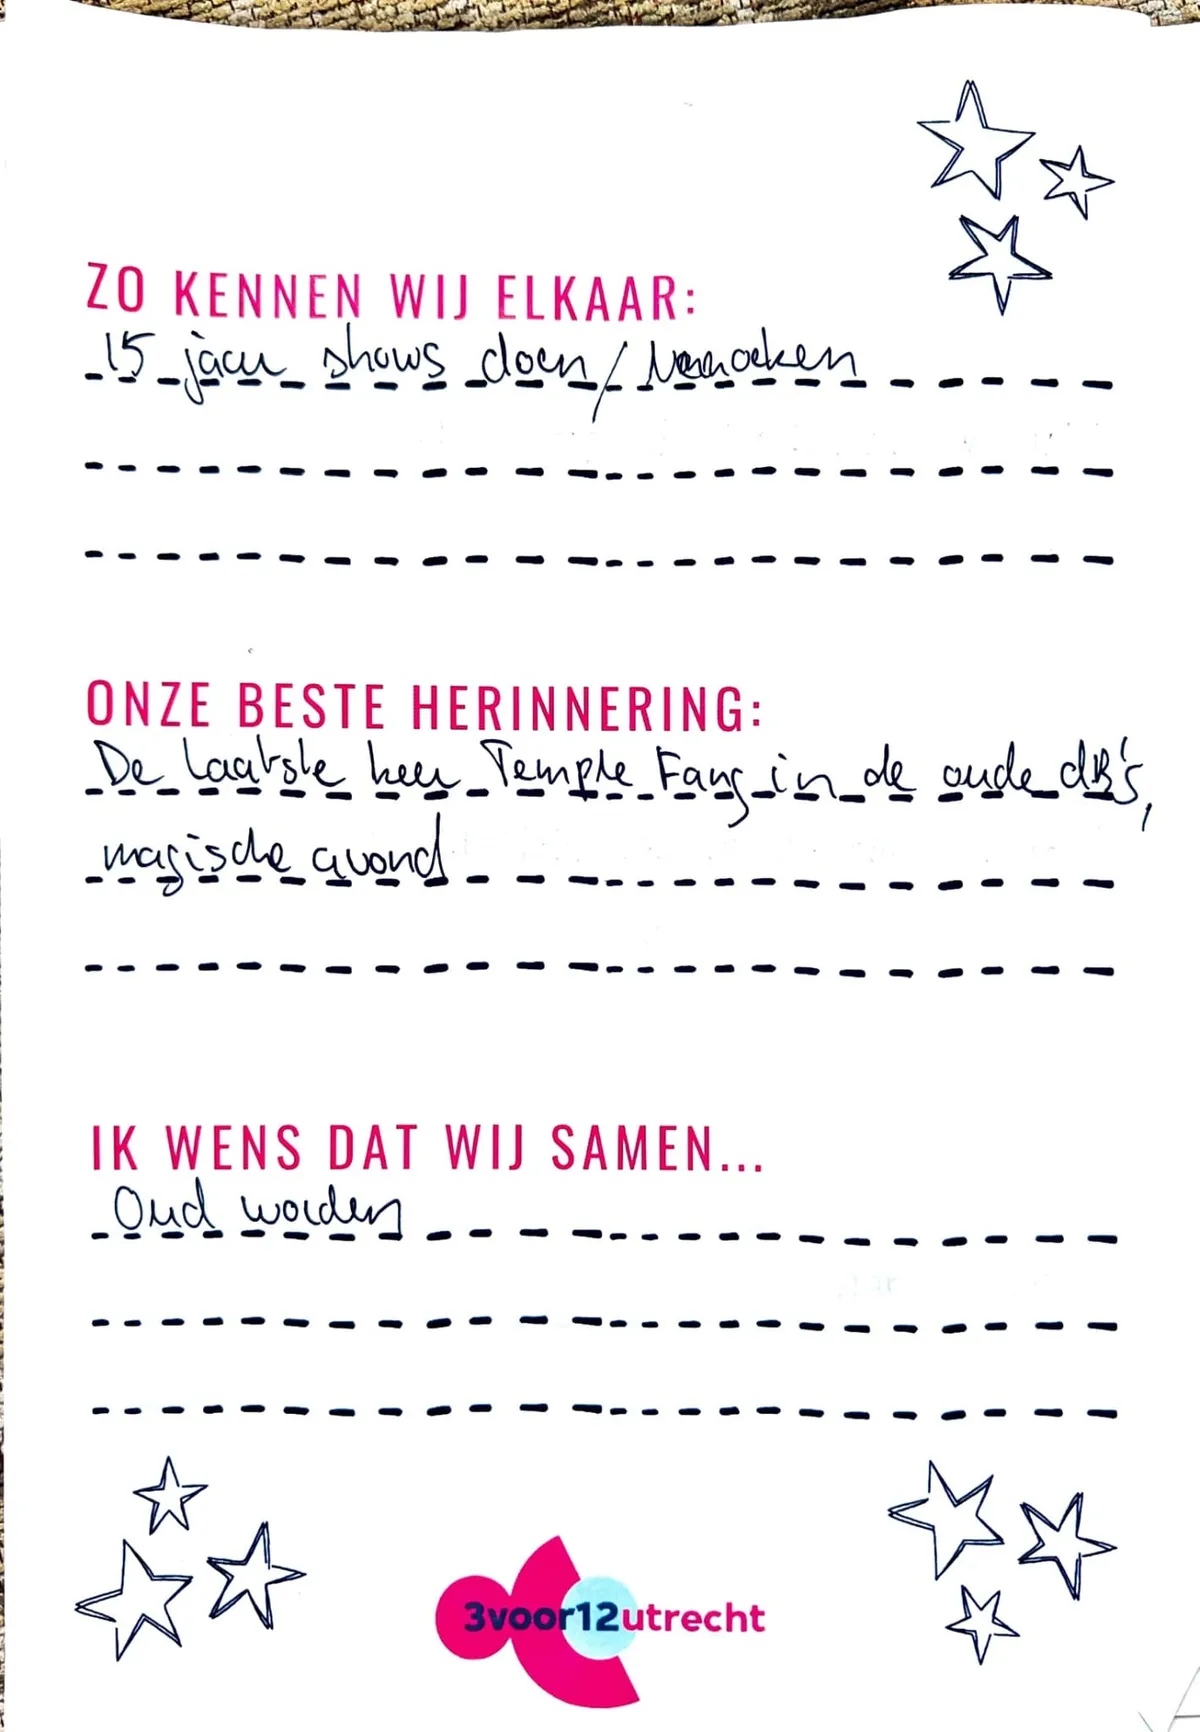 ZO KENNEN WIJ ELKAAR:
15 jaar shows doen /
ONZE BESTE HERINNERING:
De laatste keer Temple Fang in de oude dB's,
magische avond
IK WENS DAT WIJ SAMEN...
Oud worden
3voor12utrecht